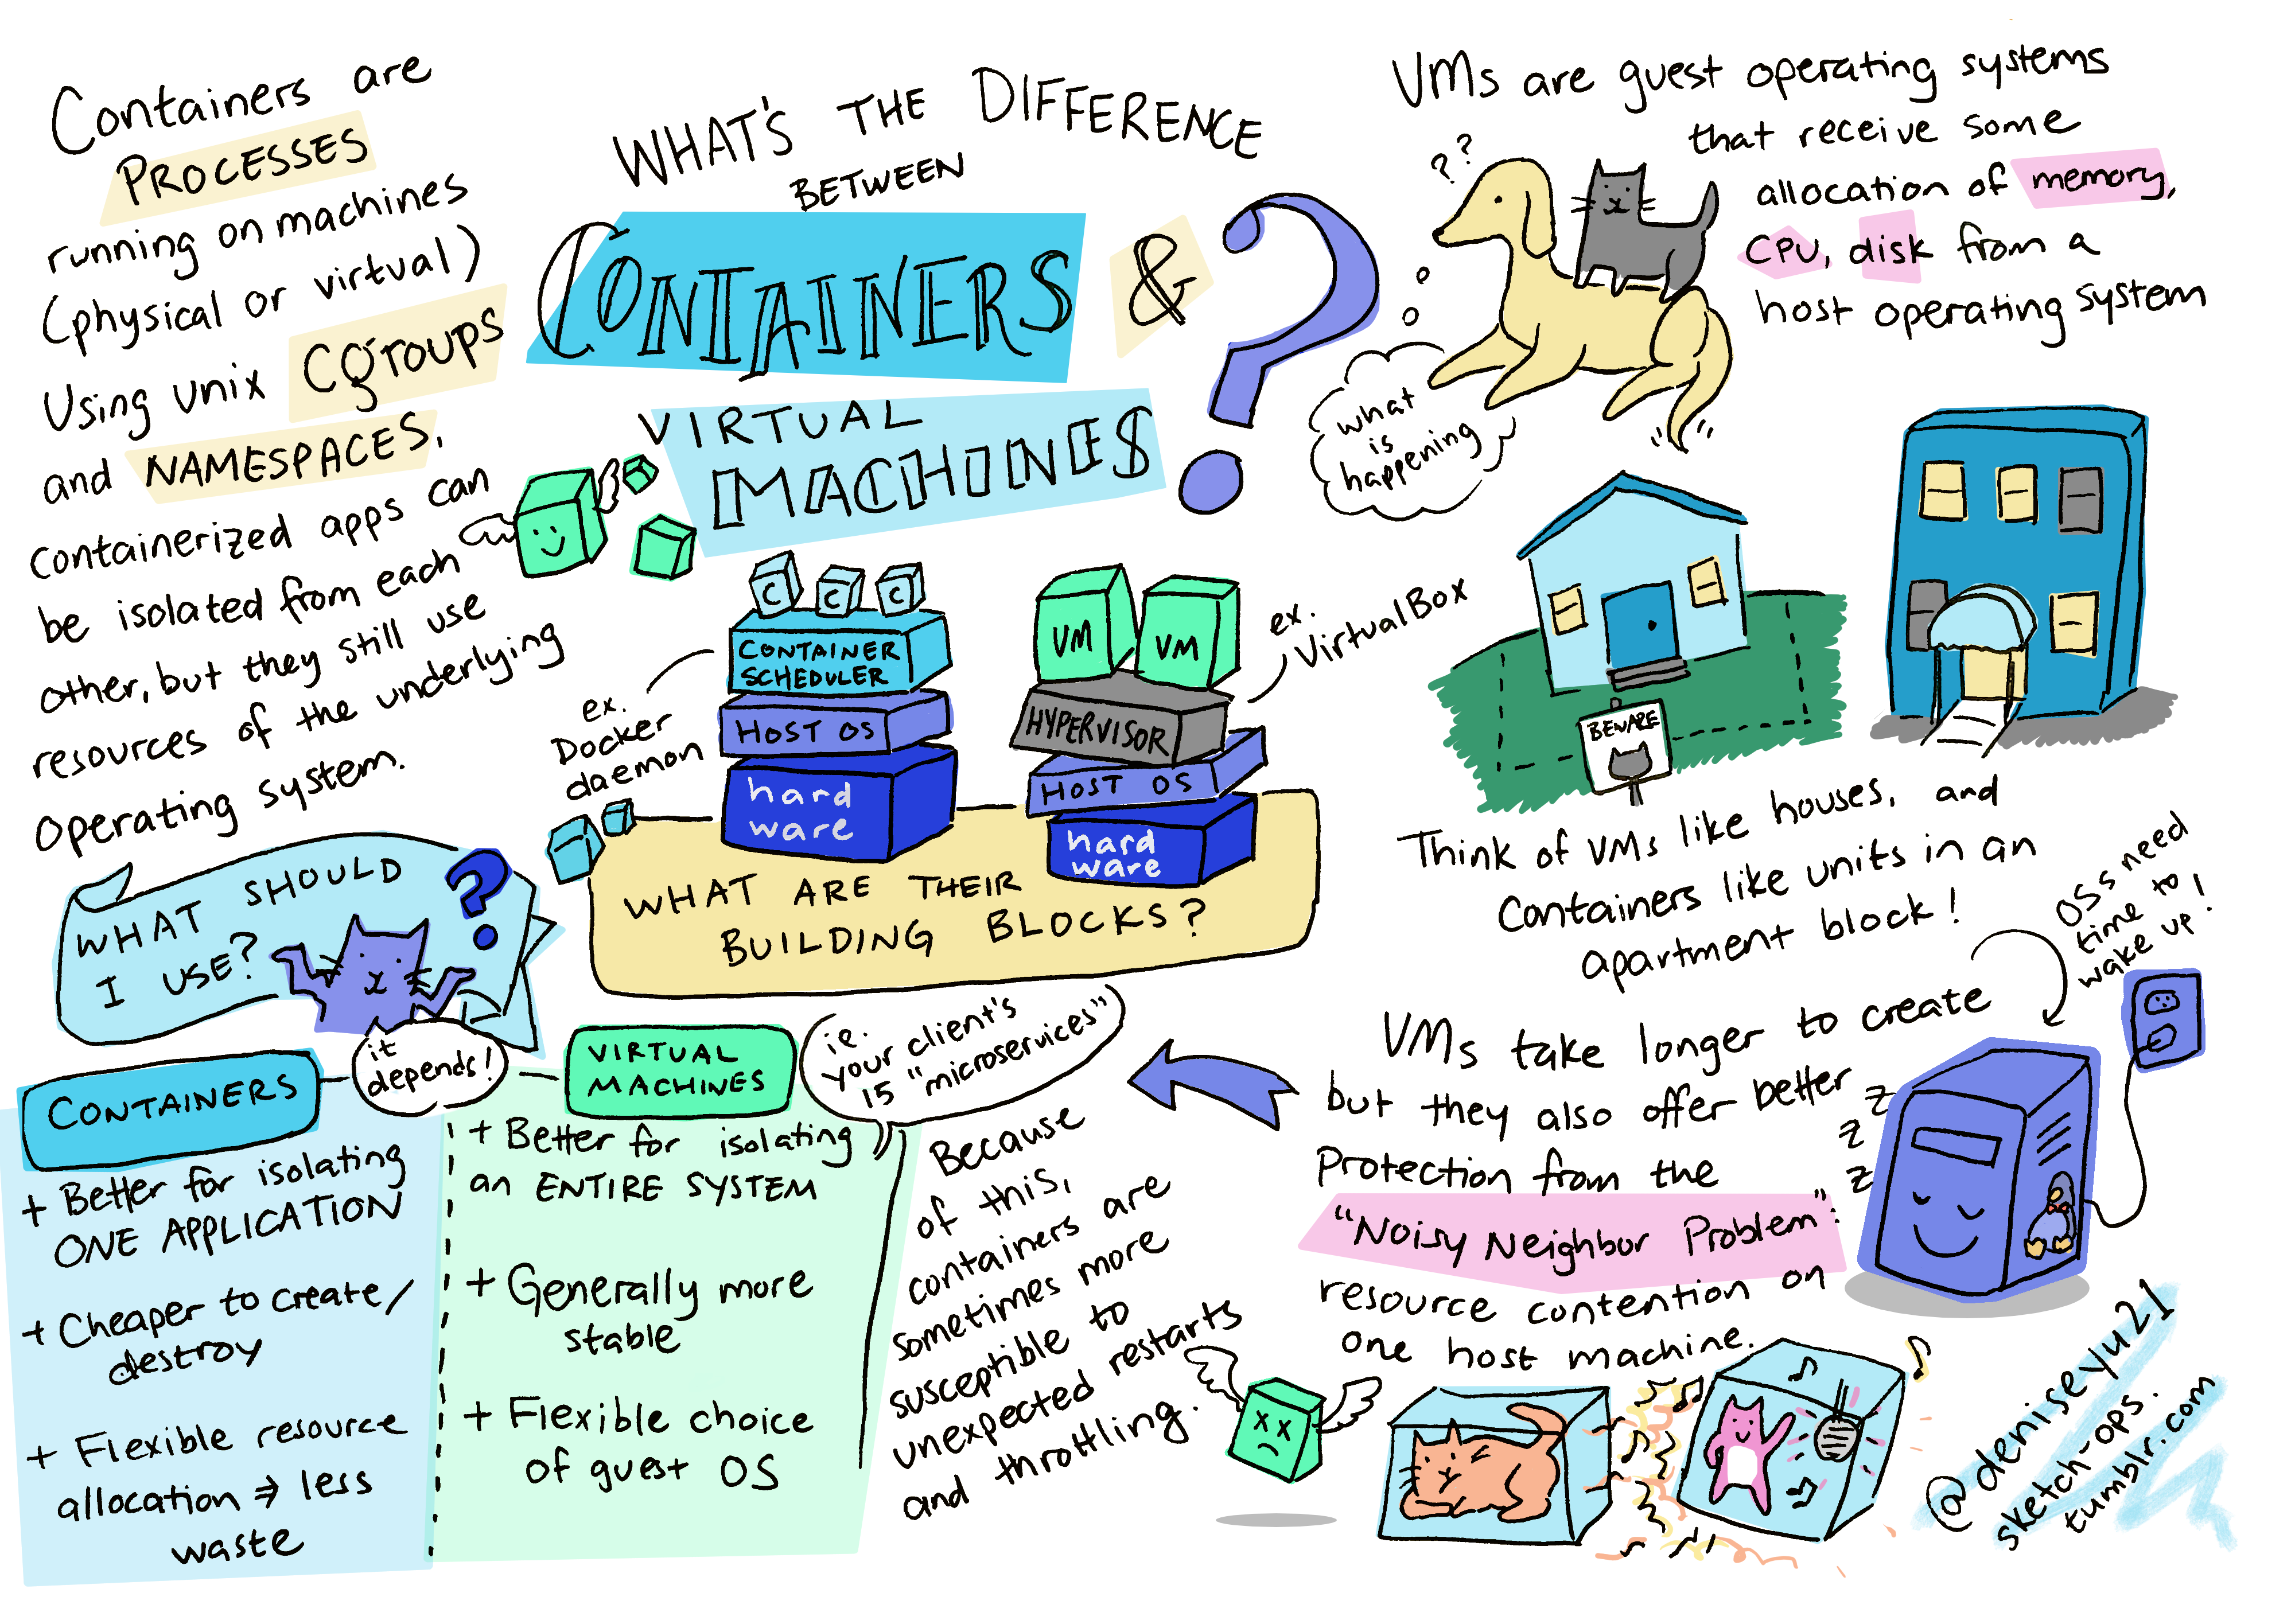 WHAT'S THE DIFFERENCE
BETWEEN
CONTAINERS &
VIRTUAL
MACHINES
?
Containers are
PROCESSES
running on machines
(physical or virtual)
Using unix cgroups
and NAMESPACES,
containerized apps can
be isolated from each
other, but they still use
resources of the underlying
operating system.
VMs are guest operating systems
that receive some
allocation of memory,
CPU, disk from a
host operating system
??
what
is
happening
C
C
C
CONTAINER
SCHEDULER
HOST OS
hard
ware
ex.
Docker
daemon
VM
VM
HYPERVISOR
HOST OS
hard
ware
ex.
VirtualBox
WHAT ARE THEIR
BUILDING BLOCKS?
BEWARE
Think of VMs like houses, and
Containers like units in an
apartment block!
OSs need
time to
wake up!
VMs take longer to create
but they also offer better
Protection from the
"Noisy Neighbor Problem":
resource contention on
one host machine.
z
z
z
WHAT SHOULD
I USE?
?
it
depends!
CONTAINERS
+ Better for isolating
ONE APPLICATION
+ Cheaper to create/
destroy
+ Flexible resource
allocation ⇒ less
waste
VIRTUAL
MACHINES
+ Better for isolating
an ENTIRE SYSTEM
+ Generally more
stable
+ Flexible choice
of guest OS
ie.
your client's
15 "microservices"
Because
of this,
containers are
sometimes more
susceptible to
unexpected restarts
and throttling.
@deniseyu21
sketch-ops.
tumblr.com